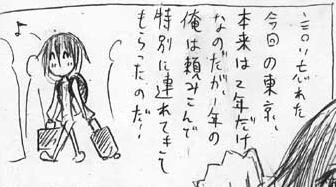 言い忘れた
今回の東京、
本来は2年だけ
なのだが1年の
俺は頼みこんで
特別に連れてきて
もらったのだ!